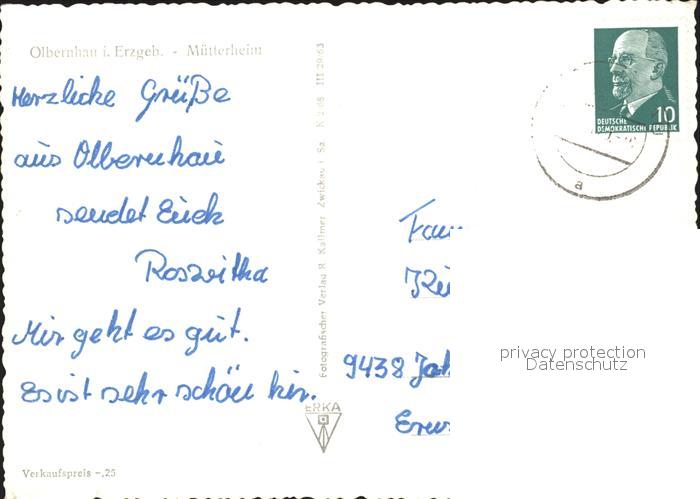 Olbernhau i. Erzgeb. - Mütterheim
Herzliche Grüße
aus Olbernhau
sendet Euch
Roswitha
Mir geht es gut.
Es ist sehr schön hier.
Verkaufspreis -,25
Fotografischer Verlag R. Kallmer Zwickau i. Sa. III 29/63
ERKA
10
DEUTSCHE
DEMOKRATISCHE REPUBLIK
a
9438
privacy protection
Datenschutz